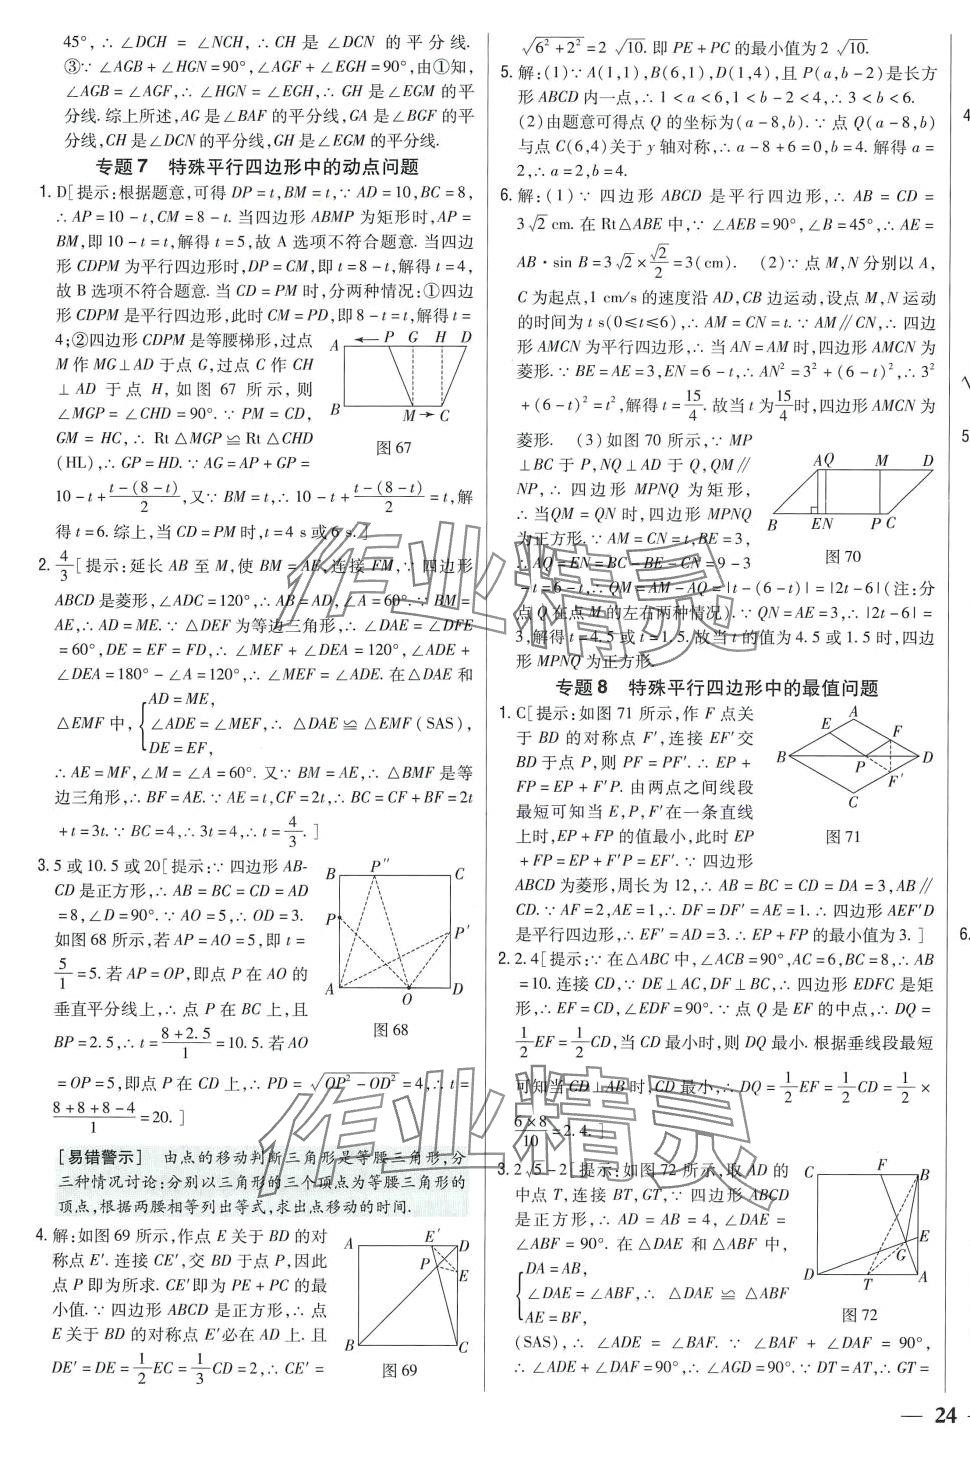 45°,∴ ∠DCH = ∠NCH,∴ CH 是 ∠DCN 的平分线.
③∵ ∠AGB+∠HGN=90°,∠AGF+∠EGH=90°,由①知,
∠AGB=∠AGF,∴ ∠HGN=∠EGH,∴ GH 是∠EGM 的平
分线. 综上所述,AG 是∠BAF 的平分线,GA 是∠BGF 的平
分线,CH 是∠DCN 的平分线,GH 是∠EGM 的平分线.
专题7 特殊平行四边形中的动点问题
1. D[提示:根据题意,可得 DP=t,BM=t,∵ AD=10,BC=8,
∴ AP=10-t,CM=8-t. 当四边形 ABMP 为矩形时,AP=
BM,即 10-t=t,解得 t=5,故 A 选项不符合题意. 当四边
形 CDPM 为平行四边形时,DP=CM,即 t=8-t,解得 t=4,
故 B 选项不符合题意. 当 CD=PM 时,分两种情况:①四边
形 CDPM 是平行四边形,此时 CM=PD,即 8-t=t,解得 t=
4;②四边形 CDPM 是等腰梯形,过点
M 作 MG⊥AD 于点 G,过点 C 作 CH
⊥AD 于点 H,如图 67 所示,则
∠MGP=∠CHD=90°.∵ PM=CD,
GM=HC,∴ Rt△MGP≌Rt△CHD
(HL),∴ GP=HD.∵ AG=AP+GP=
10-t+\frac{t-(8-t)}{2},又∵ BM=t,∴ 10-t+\frac{t-(8-t)}{2}=t,解
得 t=6. 综上,当 CD=PM 时,t=4 s 或 6 s.]
A P G H D
B M C
图 67
2. \frac{4}{3}[提示:延长 AB 至 M,使 BM=AE,连接 FM,∵ 四边形
ABCD 是菱形,∠ADC=120°,∴ AB=AD,∠A=60°.∵ BM=
AE,∴ AD=ME.∵ △DEF 为等边三角形,∴ ∠DAE=∠DFE
=60°,DE=EF=FD,∴ ∠MEF+∠DEA=120°,∠ADE+
∠DEA=180°-∠A=120°,∴ ∠MEF=∠ADE. 在△DAE 和
△EMF 中,{AD=ME,
∠ADE=∠MEF,∴ △DAE≌△EMF(SAS),
DE=EF,
∴ AE=MF,∠M=∠A=60°. 又∵ BM=AE,∴ △BMF 是等
边三角形,∴ BF=AE.∵ AE=t,CF=2t,∴ BC=CF+BF=2t
+t=3t.∵ BC=4,∴ 3t=4,∴ t=\frac{4}{3}. ]
3. 5 或 10. 5 或 20[提示:∵ 四边形 AB-
CD 是正方形,∴ AB=BC=CD=AD
=8,∠D=90°.∵ AO=5,∴ OD=3.
如图 68 所示,若 AP=AO=5,即 t=
\frac{5}{1}=5. 若 AP=OP,即点 P 在 AO 的
垂直平分线上,∴ 点 P 在 BC 上,且
BP=2. 5,∴ t=\frac{8+2. 5}{1}=10. 5. 若 AO
=OP=5,即点 P 在 CD 上,∴ PD=\sqrt{OP²-OD²}=4,∴ t=
\frac{8+8+8-4}{1}=20. ]
B P″ C
P P′
A O D
图 68
[易错警示] 由点的移动判断三角形是等腰三角形,分
三种情况讨论:分别以三角形的三个顶点为等腰三角形的
顶点,根据两腰相等列出等式,求出点移动的时间.
4. 解:如图 69 所示,作点 E 关于 BD 的对
称点 E′. 连接 CE′,交 BD 于点 P,因此
点 P 即为所求. CE′即为 PE+PC 的最
小值.∵ 四边形 ABCD 是正方形,∴ 点
E 关于 BD 的对称点 E′必在 AD 上. 且
DE′=DE=\frac{1}{2}EC=\frac{1}{3}CD=2,∴ CE′=
A E′ D
P E
B C
图 69
\sqrt{6²+2²}=2\sqrt{10}. 即 PE+PC 的最小值为 2\sqrt{10}.
5. 解:(1)∵ A(1,1),B(6,1),D(1,4),且 P(a,b-2)是长方
形 ABCD 内一点,∴ 1<a<6,1<b-2<4,∴ 3<b<6.
(2)由题意可得点 Q 的坐标为(a-8,b).∵ 点 Q(a-8,b)
与点 C(6,4)关于 y 轴对称,∴ a-8+6=0,b=4. 解得 a=
2,∴ a=2,b=4.
6. 解:(1)∵ 四边形 ABCD 是平行四边形,∴ AB=CD=
3\sqrt{2} cm. 在 Rt△ABE 中,∵ ∠AEB=90°,∠B=45°,∴ AE=
AB·sin B=3\sqrt{2}×\frac{\sqrt{2}}{2}=3(cm). (2)∵ 点 M,N 分别以 A,
C 为起点,1 cm/s 的速度沿 AD,CB 边运动,设点 M,N 运动
的时间为 t s(0≤t≤6),∴ AM=CN=t.∵ AM∥CN,∴ 四边
形 AMCN 为平行四边形,∴ 当 AN=AM 时,四边形 AMCN 为
菱形.∵ BE=AE=3,EN=6-t,∴ AN²=3²+(6-t)²,∴ 3²
+(6-t)²=t²,解得 t=\frac{15}{4}. 故当 t 为\frac{15}{4}时,四边形 AMCN 为
菱形. (3)如图 70 所示,∵ MP
⊥BC 于 P,NQ⊥AD 于 Q,QM∥
NP,∴ 四边形 MPNQ 为矩形,
∴ 当 QM=QN 时,四边形 MPNQ
为正方形.∵ AM=CN=t,BE=3,
∴ AQ=EN=BC-BE-CN=9-3
-t=6-t,∴ QM=AM-AQ=|t-(6-t)|=|2t-6|(注:分
点 Q 在点 M 的左右两种情况).∵ QN=AE=3,∴ |2t-6|=
3,解得 t=4. 5 或 t=1. 5. 故当 t 的值为 4. 5 或 1. 5 时,四边
形 MPNQ 为正方形.
AQ M D
B EN P C
图 70
专题8 特殊平行四边形中的最值问题
1. C[提示:如图 71 所示,作 F 点关
于 BD 的对称点 F′,连接 EF′交
BD 于点 P,则 PF=PF′.∴ EP+
FP=EP+F′P. 由两点之间线段
最短可知当 E,P,F′在一条直线
上时,EP+FP 的值最小,此时 EP
+FP=EP+F′P=EF′.∵ 四边形
ABCD 为菱形,周长为 12,∴ AB=BC=CD=DA=3,AB∥
CD.∵ AF=2,AE=1,∴ DF=DF′=AE=1.∴ 四边形 AEF′D
是平行四边形,∴ EF′=AD=3.∴ EP+FP 的最小值为 3. ]
A
E F
B P D
F′
C
图 71
2. 2. 4[提示:∵ 在△ABC 中,∠ACB=90°,AC=6,BC=8,∴ AB
=10. 连接 CD,∵ DE⊥AC,DF⊥BC,∴ 四边形 EDFC 是矩
形,∴ EF=CD,∠EDF=90°.∵ 点 Q 是 EF 的中点,∴ DQ=
\frac{1}{2}EF=\frac{1}{2}CD,当 CD 最小时,则 DQ 最小. 根据垂线段最短
可知当 CD⊥AB 时,CD 最小,∴ DQ=\frac{1}{2}EF=\frac{1}{2}CD=\frac{1}{2}×
\frac{6×8}{10}=2. 4. ]
3. 2\sqrt{5}-2[提示:如图 72 所示,取 AD 的
中点 T,连接 BT,GT,∵ 四边形 ABCD
是正方形,∴ AD=AB=4,∠DAE=
∠ABF=90°. 在△DAE 和△ABF 中,
{DA=AB,
∠DAE=∠ABF,∴ △DAE≌△ABF
AE=BF,
(SAS),∴ ∠ADE=∠BAF.∵ ∠BAF+∠DAF=90°,
∴ ∠ADE+∠DAF=90°,∴ ∠AGD=90°.∵ DT=AT,∴ GT=
C F B
E
G
D T A
图 72
4
5
6.
— 24 -
作业精灵
作业精灵